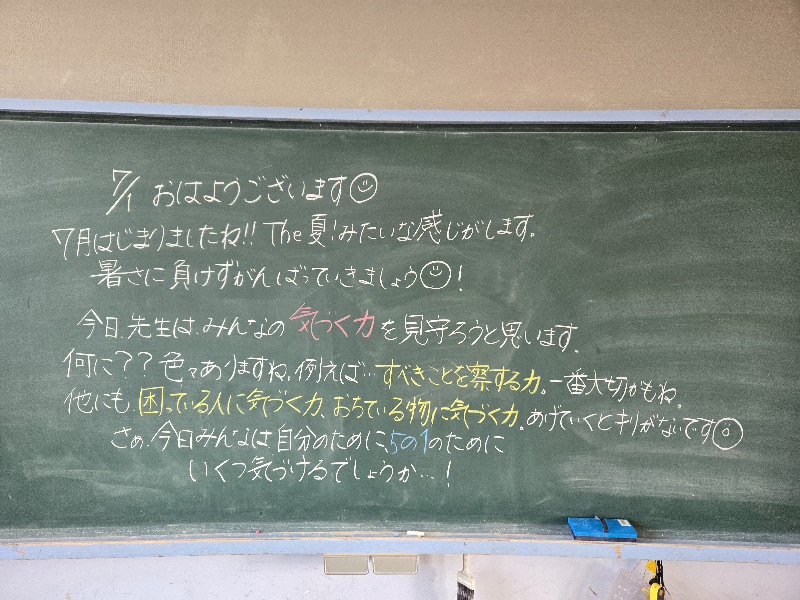 7/1 おはようございます☺
7月はじまりましたね!! The 夏!みたいな感じがします。
暑さに負けずがんばっていきましょう☺!
今日、先生は、みんなの気づく力を見守ろうと思います。
何に?? 色々ありますね。例えば…すべきことを察する力。一番大切かもね。
他にも、困っている人に気づく力、おちている物に気づく力。あげていくとキリがないです☺
さぁ、今日みんなは自分のために、5の1のために
いくつ気づけるでしょうか…!